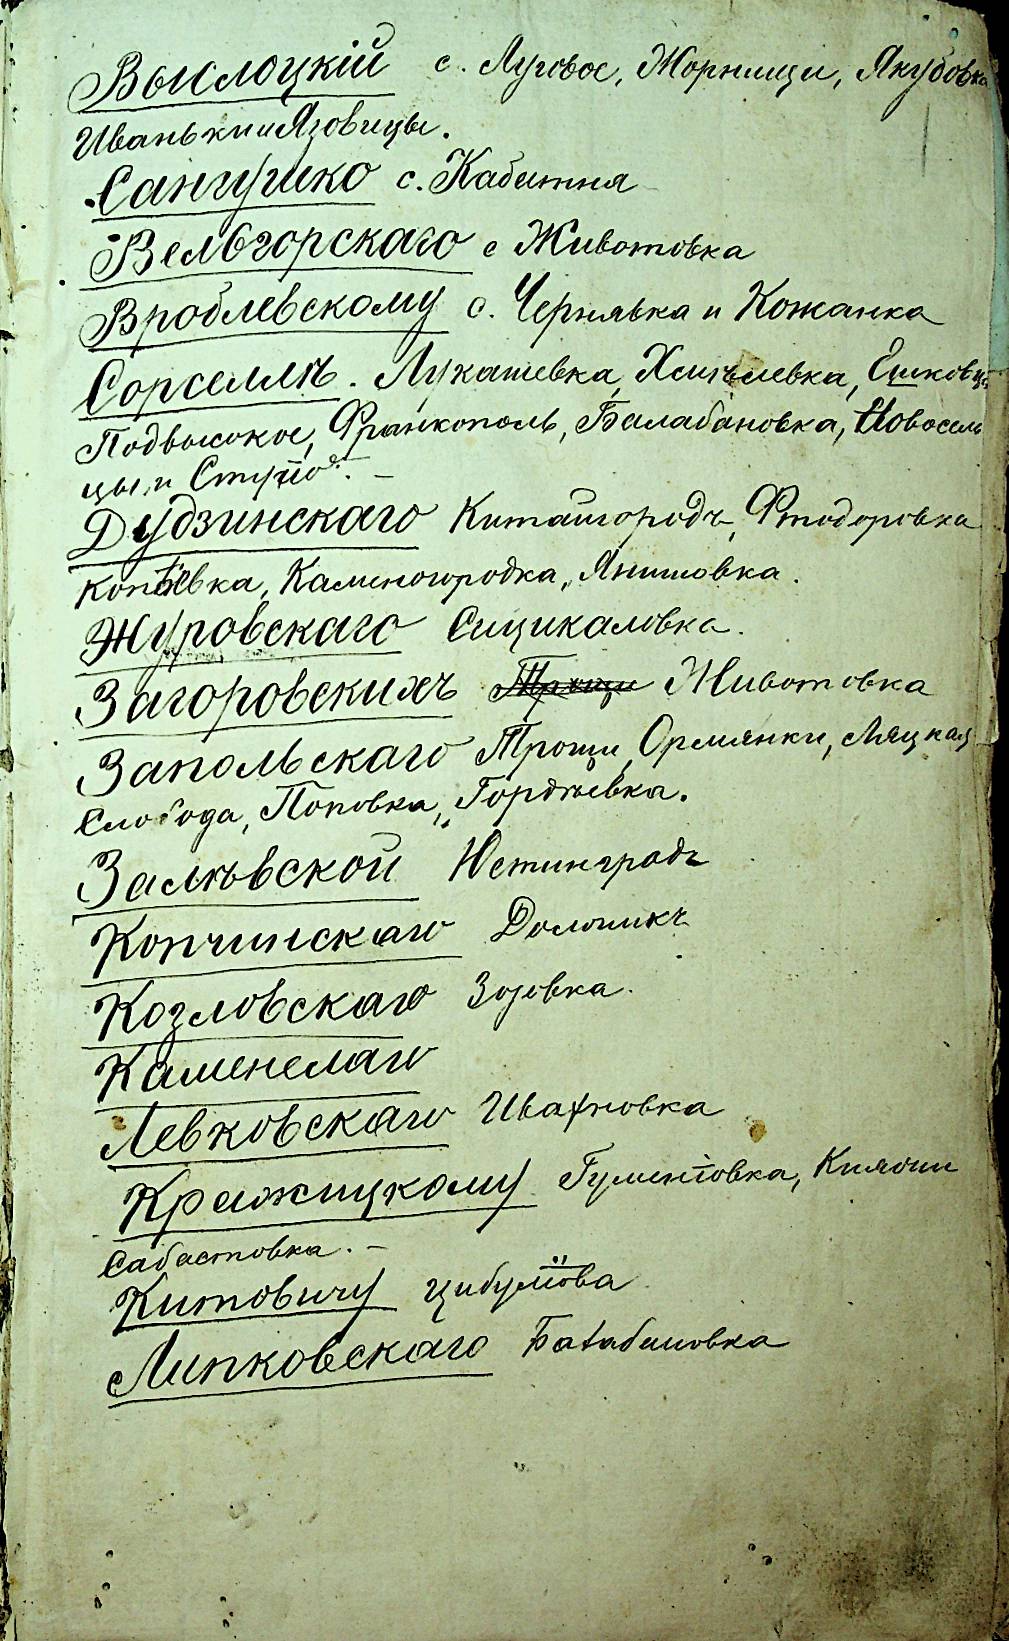 Выслоцкій с. Луговое, Жорнищи, Якубовка
Иваньки и Яговицы.
Сангушко с. Кабытня
Вельгорскаго с Животовка
Вроблевскому с. Чернявка и Кожанка
Сорселль. Лукашевка, Хмѣлевка,
Подвысокое, Франкополь, Балабановка, Новосель
цы, и
Дудзинскаго Китайгородъ, Фтодоровка
Копѣевка, Каменогородка, Янишовка.
Журовскаго Сицикаловка.
Загоровскихъ Трощи Животовка
Запольскаго Трощи, Ормянки, Ляцкая
Слобода, Поповка, Гордѣевка.
Залѣвской Юстинградъ
Копчинскаго
Козловскаго Зозовка.
Левковскаго Ивахновка
Гуменіовка, Княжи
Сабастовка. -
Китовичу Цибулiова
Липковскаго Балабановка